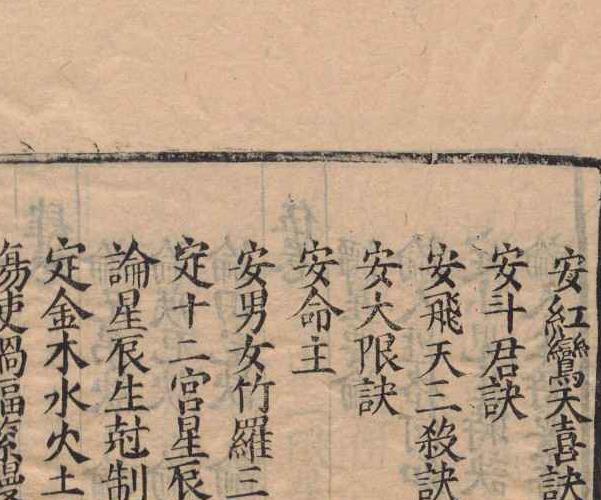 安紅鸞天喜訣
安斗君訣
安飛天三殺訣
安大限訣
安命主
安男女竹羅三
定十二宮星辰
論星辰生尅制
定金木水火土
傷使禍福